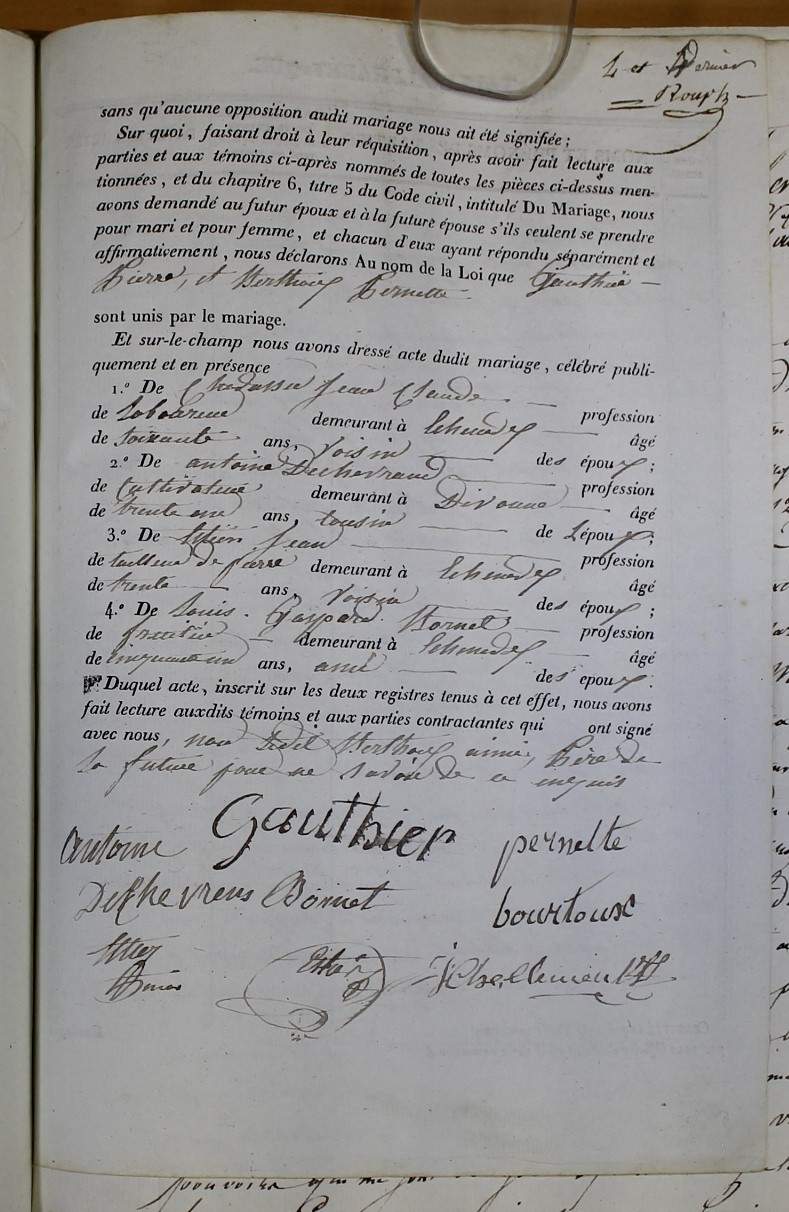 4 et Dernier
sans qu'aucune opposition audit mariage nous ait été signifiée ;
Sur quoi, faisant droit à leur réquisition, après avoir fait lecture aux
parties et aux témoins ci-après nommés de toutes les pièces ci-dessus men-
tionnées, et du chapitre 6, titre 5 du Code civil, intitulé Du Mariage, nous
avons demandé au futur époux et à la future épouse s'ils veulent se prendre
pour mari et pour femme, et chacun d'eux ayant répondu séparément et
affirmativement, nous déclarons Au nom de la Loi que Gauthier
Pierre, et Berthoux Pernette
sont unis par le mariage.
Et sur-le-champ nous avons dressé acte dudit mariage, célébré publi-
quement et en présence
1.º De Jean Claude profession
de Laboureur demeurant à âgé
de soixante ans, voisin des époux ;
2.º De antoine Dechevrand profession
de Cultivateur demeurant à Divonne âgé
de trente ans, cousin de L'époux ;
3.º De Jean profession
de tailleur de pierre demeurant à âgé
de trente ans, voisin des époux ;
4.º De Louis Gaspard Bornet profession
de demeurant à âgé
de cinquante un ans, ami des époux.
Duquel acte, inscrit sur les deux registres tenus à cet effet, nous avons
fait lecture auxdits témoins et aux parties contractantes qui ont signé
avec nous, non Ledit Berthoux aimé, Père de
la future pour ne savoir de ce enquis
antoine Gauthier pernette
Dechevrens Bornet bourtoux